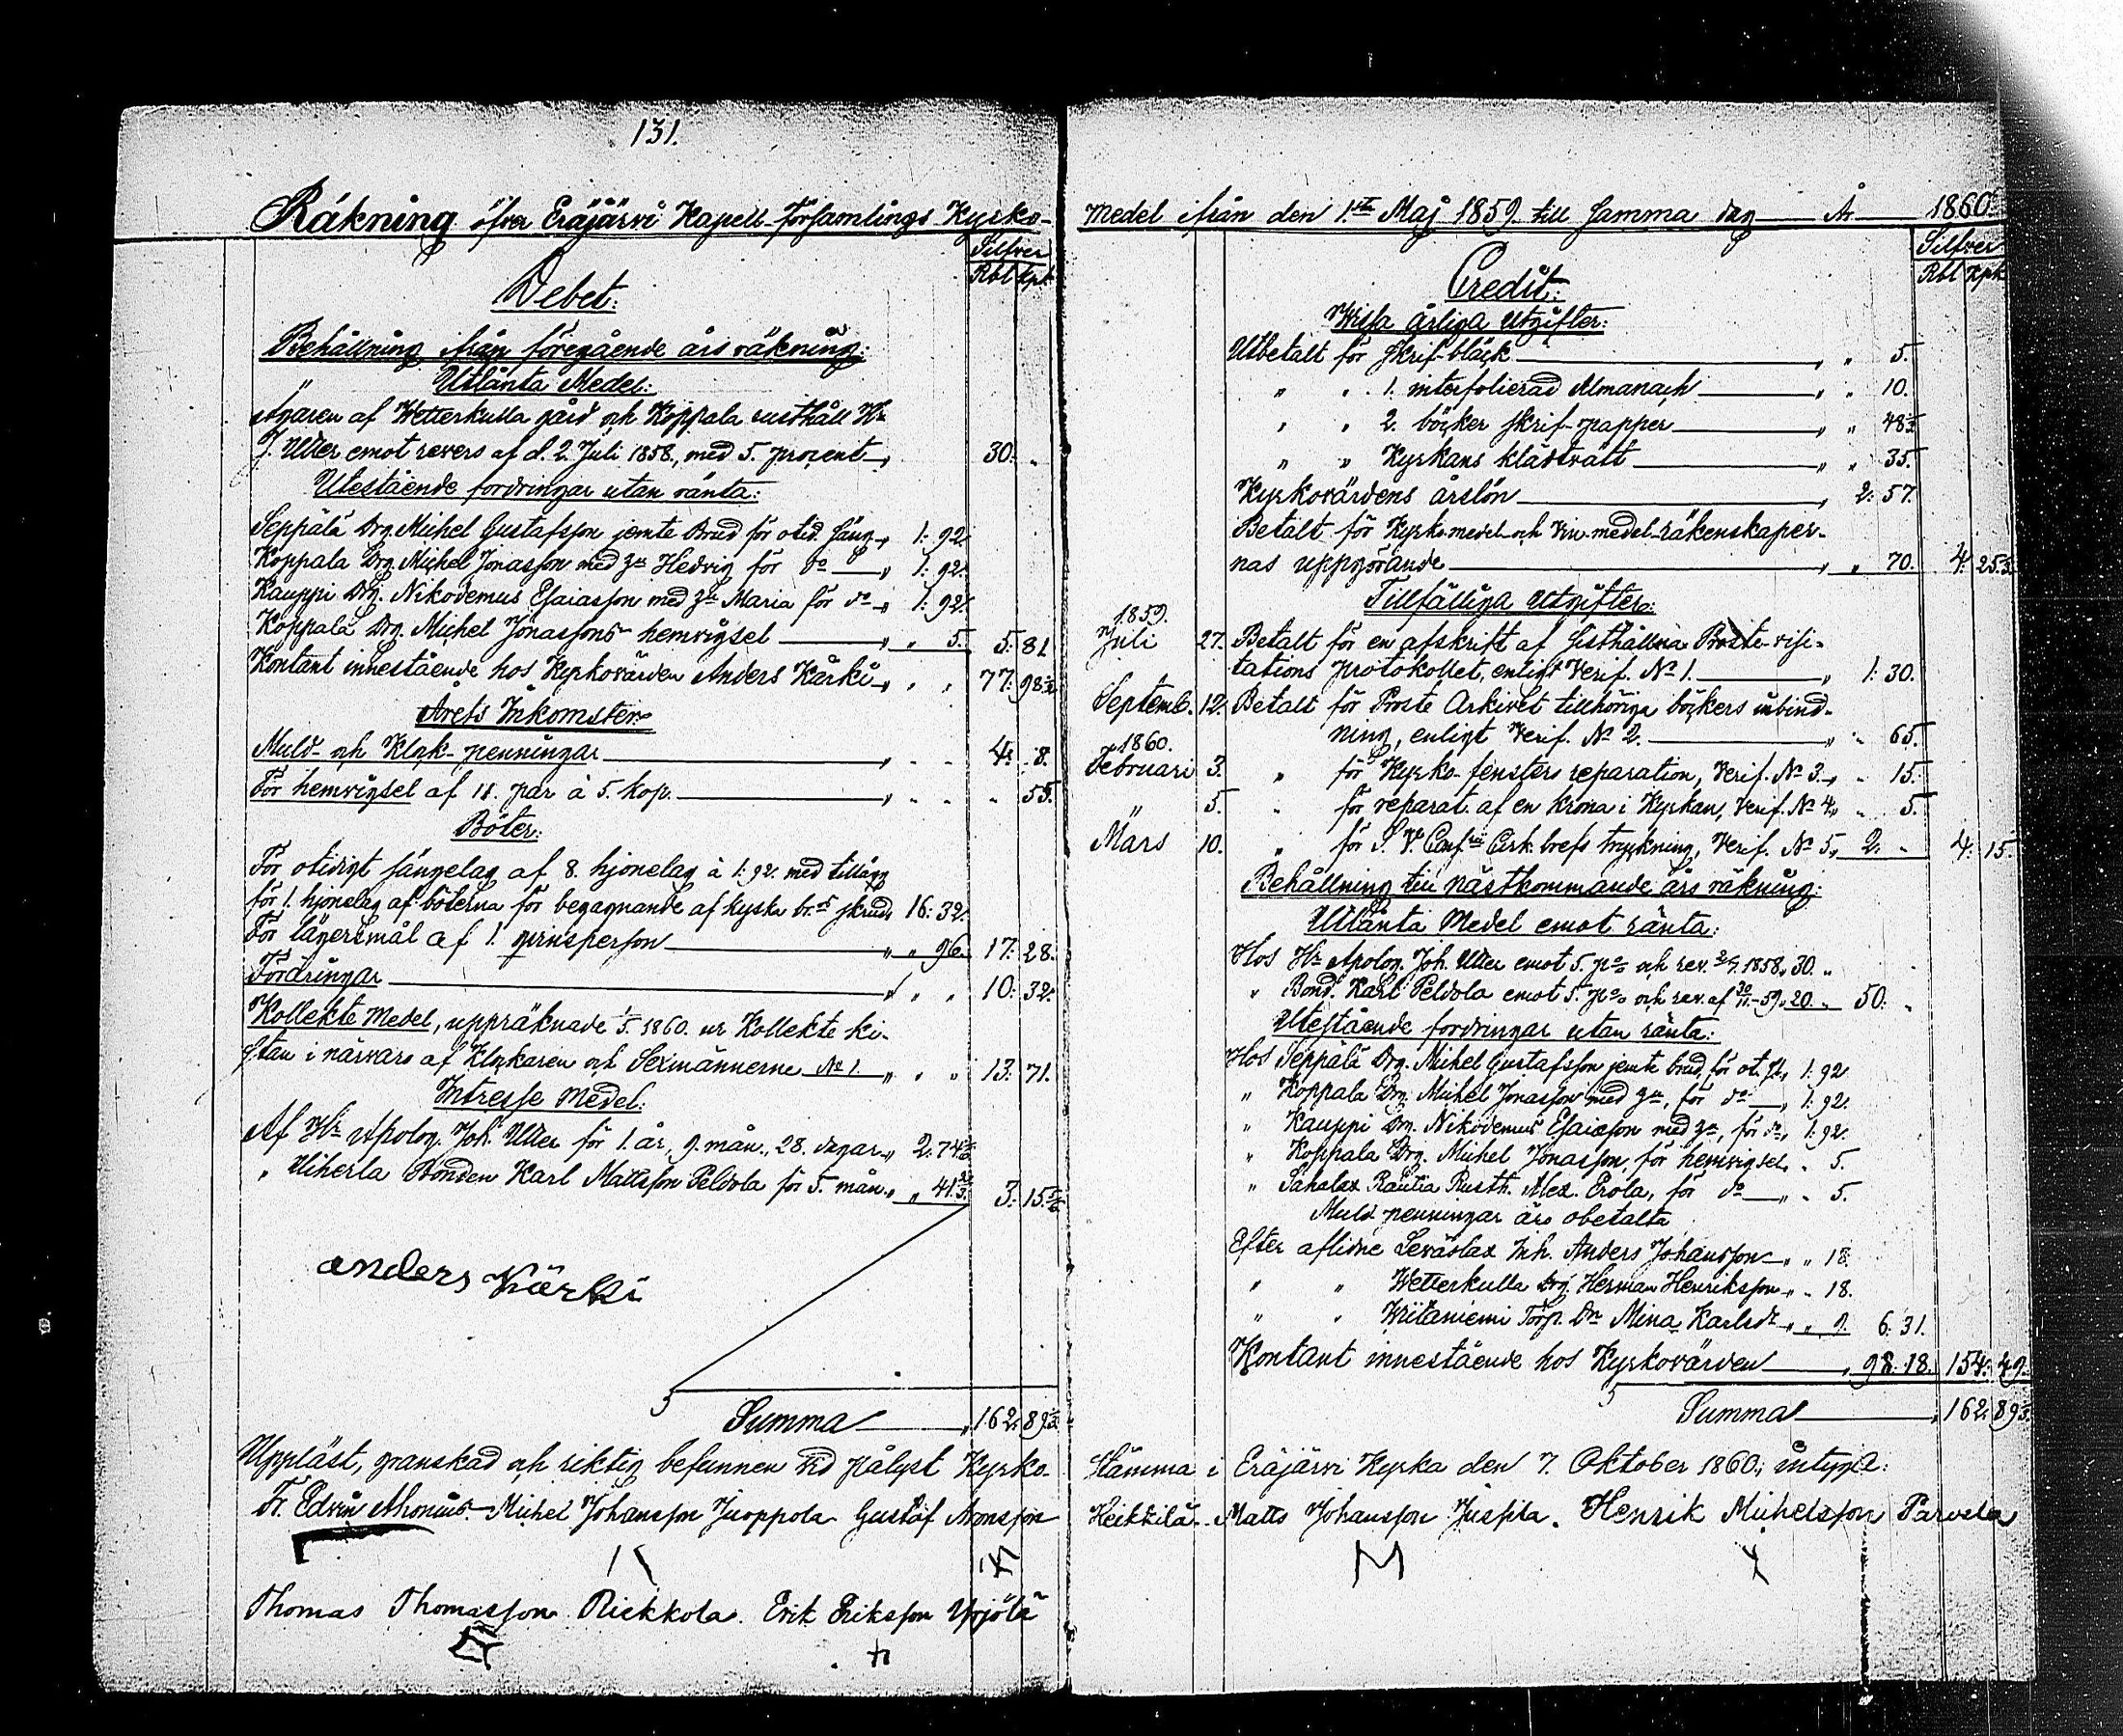 131.
Räkning öfver Eräjärvi Kapell-församlings Kyrko-
Silfver
Rbl Kpk
Debet:
Behållning från föregående års räkning:
Utlånta Medel:
Ägaren af Wetterkulla gård och Koppala rusthåll Hr
J. Utter emot revers af d. 2. Juli 1858, med 5. procent 30. "
Utestående fordringar utan ränta:
Seppälä Drg. Michel Gustafsson jemte Brud för otid. säng 1: 92.
Koppala Drg Michel Jonasson med h:u Hedvig för do 1: 92.
Kauppi Drg. Nikodemus Esaiasson med h:u Maria för do 1: 92.
Koppala Drg. Michel Jonassons hemvigsel " 5. 5: 81
Kontant innestående hos Kyrkovärden Anders Kärki " " 77: 98
Årets Inkomster
Muld- och Klock-penningar 4: 8.
För hemvigsel af 11. par à 5. kop. " 55.
Böter:
För otidigt sängelag af 8. hjonelag à 1: 92. med tillägg
för 1. hjonelag af böterna för begagnande af kyska skrud 16: 32.
För lägersmål af 1. qvinsperson " 96. 17: 28.
Fordringar " " 10: 32.
Kollekte Medel, uppräknade 1/5 1860. ur Kollekte ki-
stan i närvaro af Klockaren och Sexmännerne No 1. " " 13: 71.
Intresse Medel:
Af Hr Apolog. Joh. Utter för 1. år, 9. mån., 28. dagar
" Uiherla Bonden Karl Mattsson Peldola för 5. mån. 3: 15
anders Kärki
Summa 162: 89 1/3
Uppläst, granskad och riktig befunnen vid pålyst Kyrko-
Fr. Edvin Ahonius Michel Johansson Juoppola Gustaf Aronsson
Thomas Thomasson Riekkola. Erik Eriksson Yrjölä
Medel ifrån den 1sta Maj 1859 till samma dag År 1860.
Silfver
Rbl Kpk
Credit:
Wissa årliga utgifter:
Utbetalt för skrif-bläck " 5.
" " 1. interfolierad Almanach " 10.
" " 2. böcker skrif-papper " 48 1/3
" " Kyrkans klädtvätt " 35.
Kyrkovärdens årslön 2: 57.
Betalt för Kyrko-medel och Vin-medel-räkenskaper-
nas uppgörande " 70. 4: 25 1/3.
Tillfälliga Utgifter:
1859.
Juli 27. Betalt för en afskrift af sisthållna Proste-visi-
tations protokollet, enligt Verif. No 1. 1: 30.
Septemb. 12. Betalt för Proste Arkivet tillhöriga böckers inbind-
ning, enligt Verif. No 2. " 65.
1860.
Februari 3. " för Kyrko-fensters reparation, Verif. No 3. " 15.
" 5. " för reparat. af en krona i Kyrkan, Verif. No 4. " 5.
Mars 10. " för Cirk. brefs tryckning, Verif. No 5. 2. " 4: 15.
Behållning till nästkommande års räkning:
Utlånta Medel emot ränta:
Hos Hr Apolog. Joh. Utter emot 5. pc och rev. 2/7 1858. 30. "
" Bond. Karl Peldola emot 5. pc och rev. af 30/11 -59. 20. " 50. "
Utestående fordringar utan ränta:
Hos Seppälä Drg. Michel Gustafsson jemte brud, för ot. sg. 1: 92
" Koppala Drg. Michel Jonasson med h:u, för do 1: 92.
" Kauppi Drg. Nikodemus Esaiasson med h:u, för do 1: 92.
" Koppala Drg. Michel Jonasson, för hemvigsel " 5.
" Sahalax Rautia Rusth. Alex. Erola, för do " 5.
Muld-penningar äro obetalta
Efter aflidne Leväslax Inh. Anders Johansson " 18.
" " Wetterkulla Drg. Herman Henriksson " 18.
" " Wiitaniemi Torp. Dr Mina Karlsdr " 9. 6: 31.
Kontant innestående hos Kyrkovärden 98: 18. 154: 49.
Summa 162: 89 1/3.
Stämma i Eräjärvi Kyrka den 7. Oktober 1860; intyga:
Heikkilä Matts Johansson Jussila. Henrik Michelsson Parvela